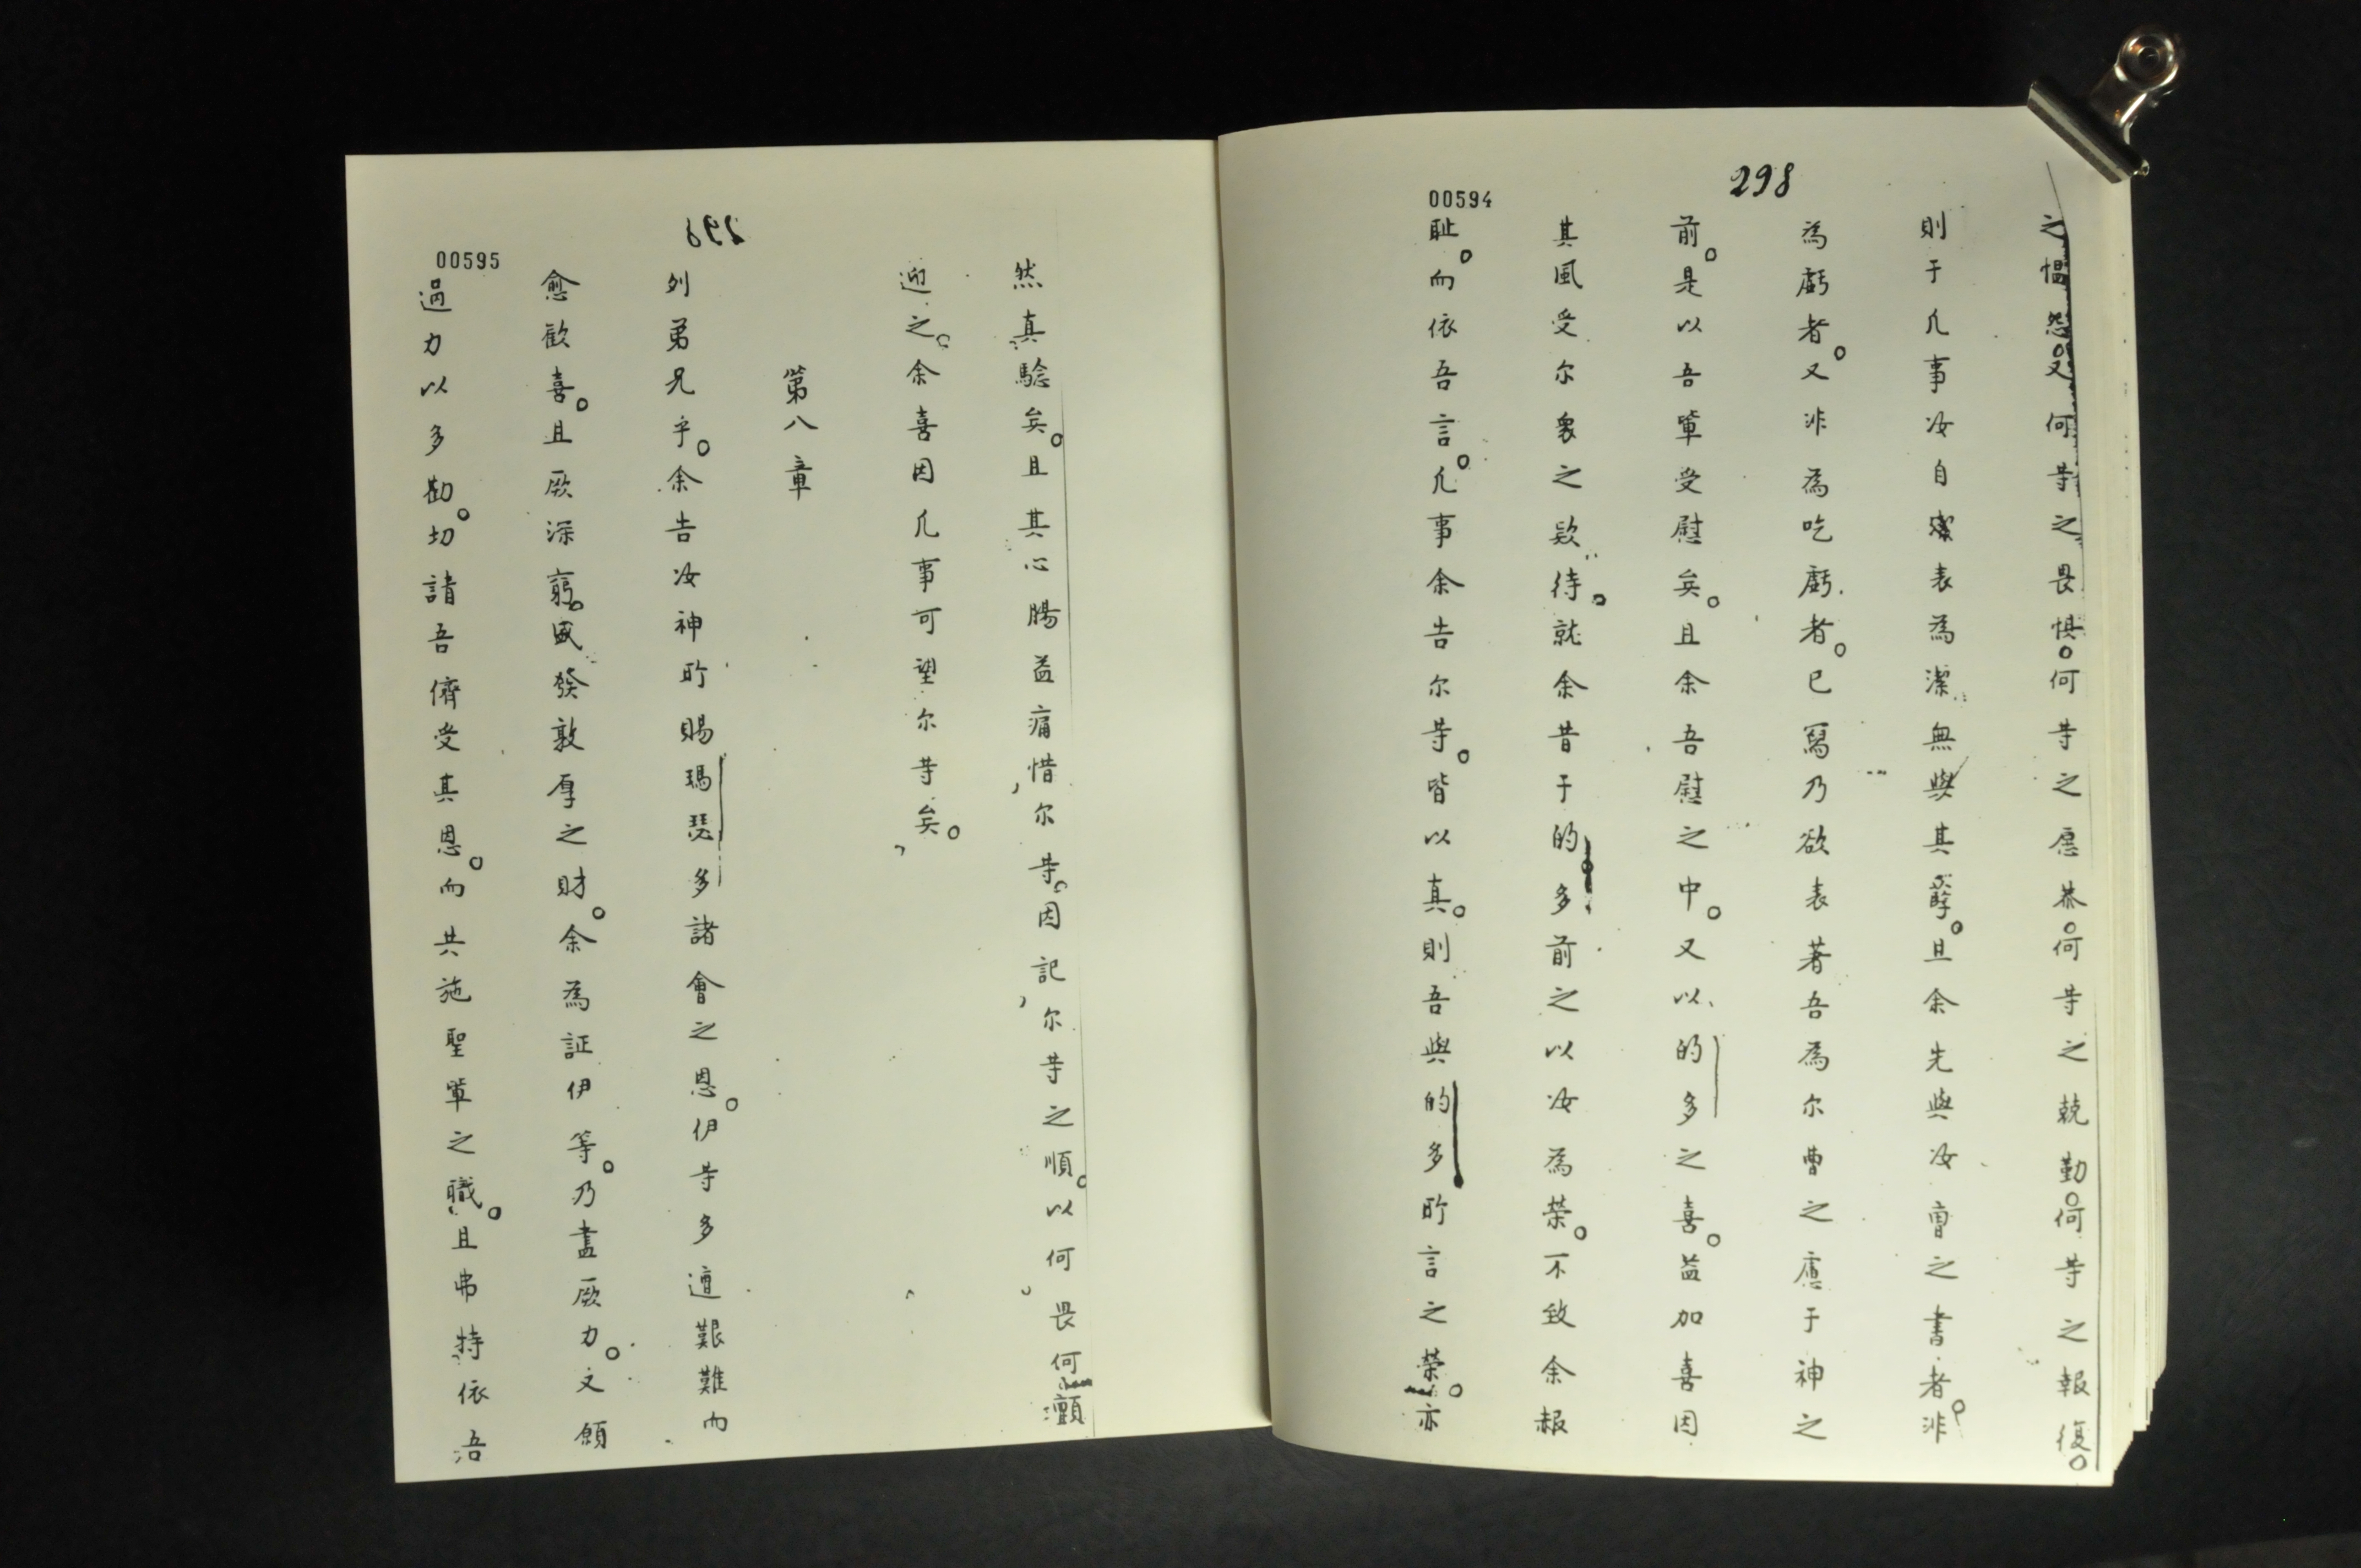 298
00594
之愠怨。又何䒭之畏惧。何䒭之愿恭。何䒭之兢勤。何䒭之報復。
則于凢事汝自潔表為潔無與其孽。且余先與汝曹之書者。非
為虧者。又非為吃虧者。已寫乃欲表著吾為尔曹之慮于神之
前。是以吾軰受慰矣。且余吾慰之中。又以的多之喜。益加喜因
其風受尔衆之欵待。就余昔于的多前之以汝為榮。不致余赧
耻。而依吾言。凢事余告尔䒭。皆以真。則吾與的多所言之榮。亦
00595
然真騐矣。且其心腸益痛惜尔䒭。因記尔䒭之順。以何畏何顫
迎之。余喜因凢事可望尔䒭矣。
第八章
列弟兄乎。余告汝神所賜瑪瑟多諸會之恩。伊䒭多遭艱難而
愈歡喜。且厥深窮。盛發敦厚之財。余為証伊等。乃盡厥力。又願
過力以多勸。切請吾儕受其恩。而共施聖軰之職。且弗特依吾